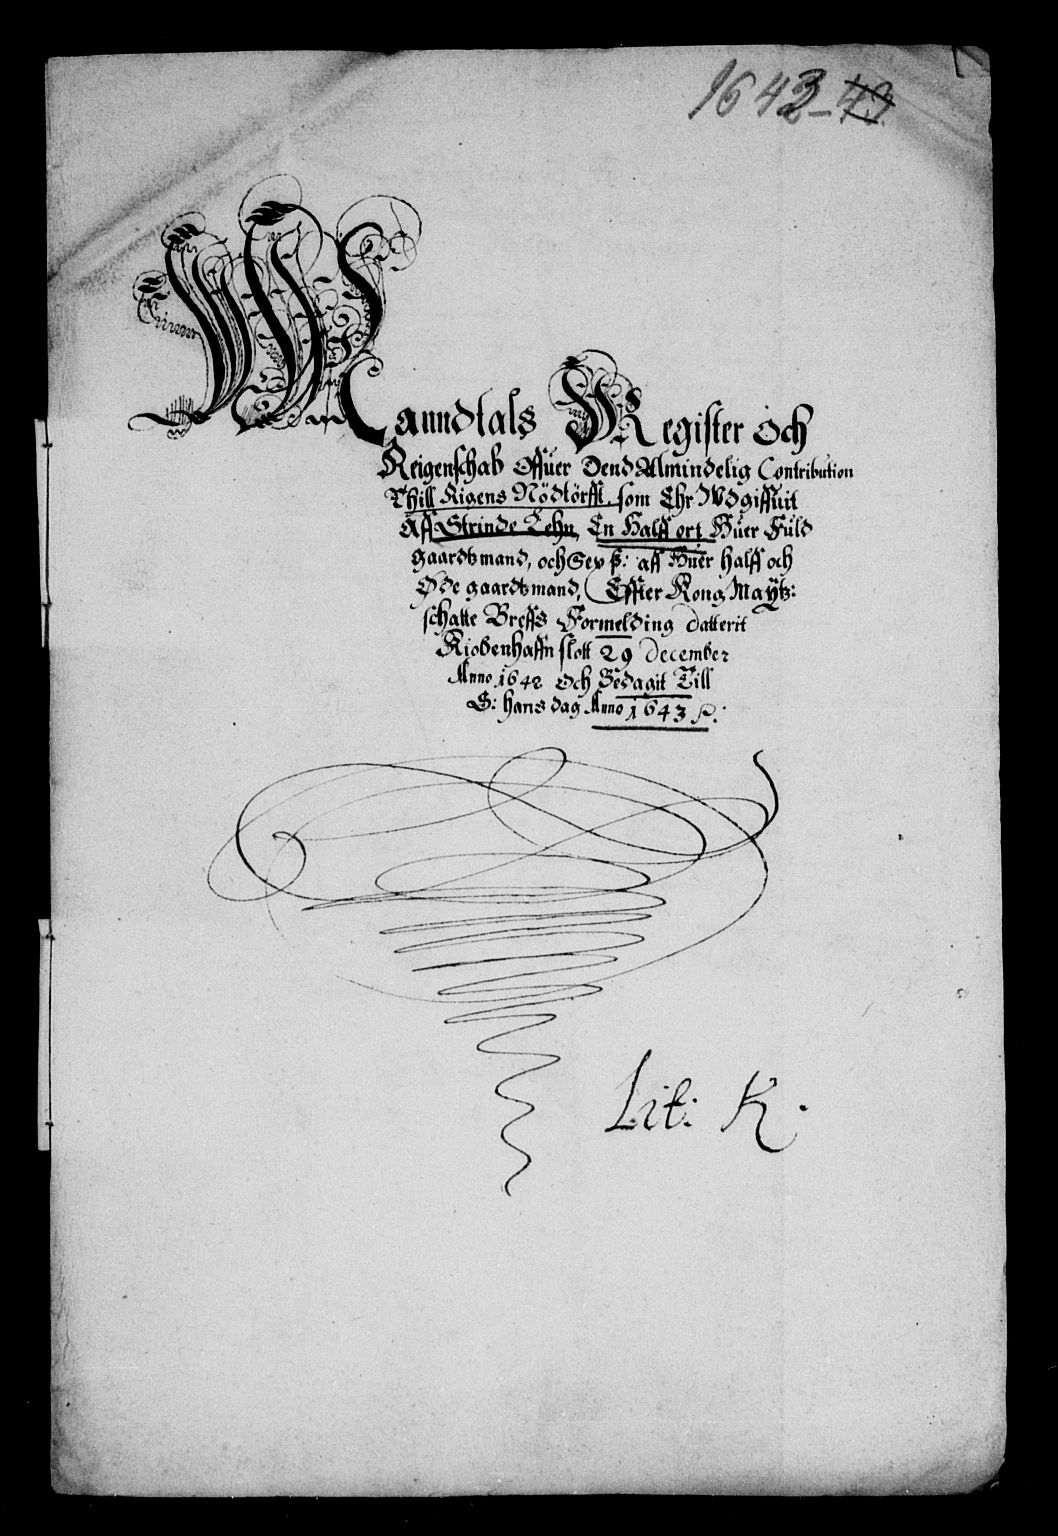 1643-43
Manndtals Register Och
Reigenschab Offuer Dend Almindelig Contribution
Thill Rigens Nödtörfft, som Ehr Wdgiffuit
Aff Strinde Lehn, En Halff ort Huer Fuld
gaardtzmand, och Sex ß: aff Huer halff och
Øde gaardtzmand, Effter Kong Maÿtz:
schatte Breffs Formelding datterit
Kiobenhaffn slott 29 December
Anno 1642 Och Bedagit Till
S: hans dag Anno 1643
Lit: K.